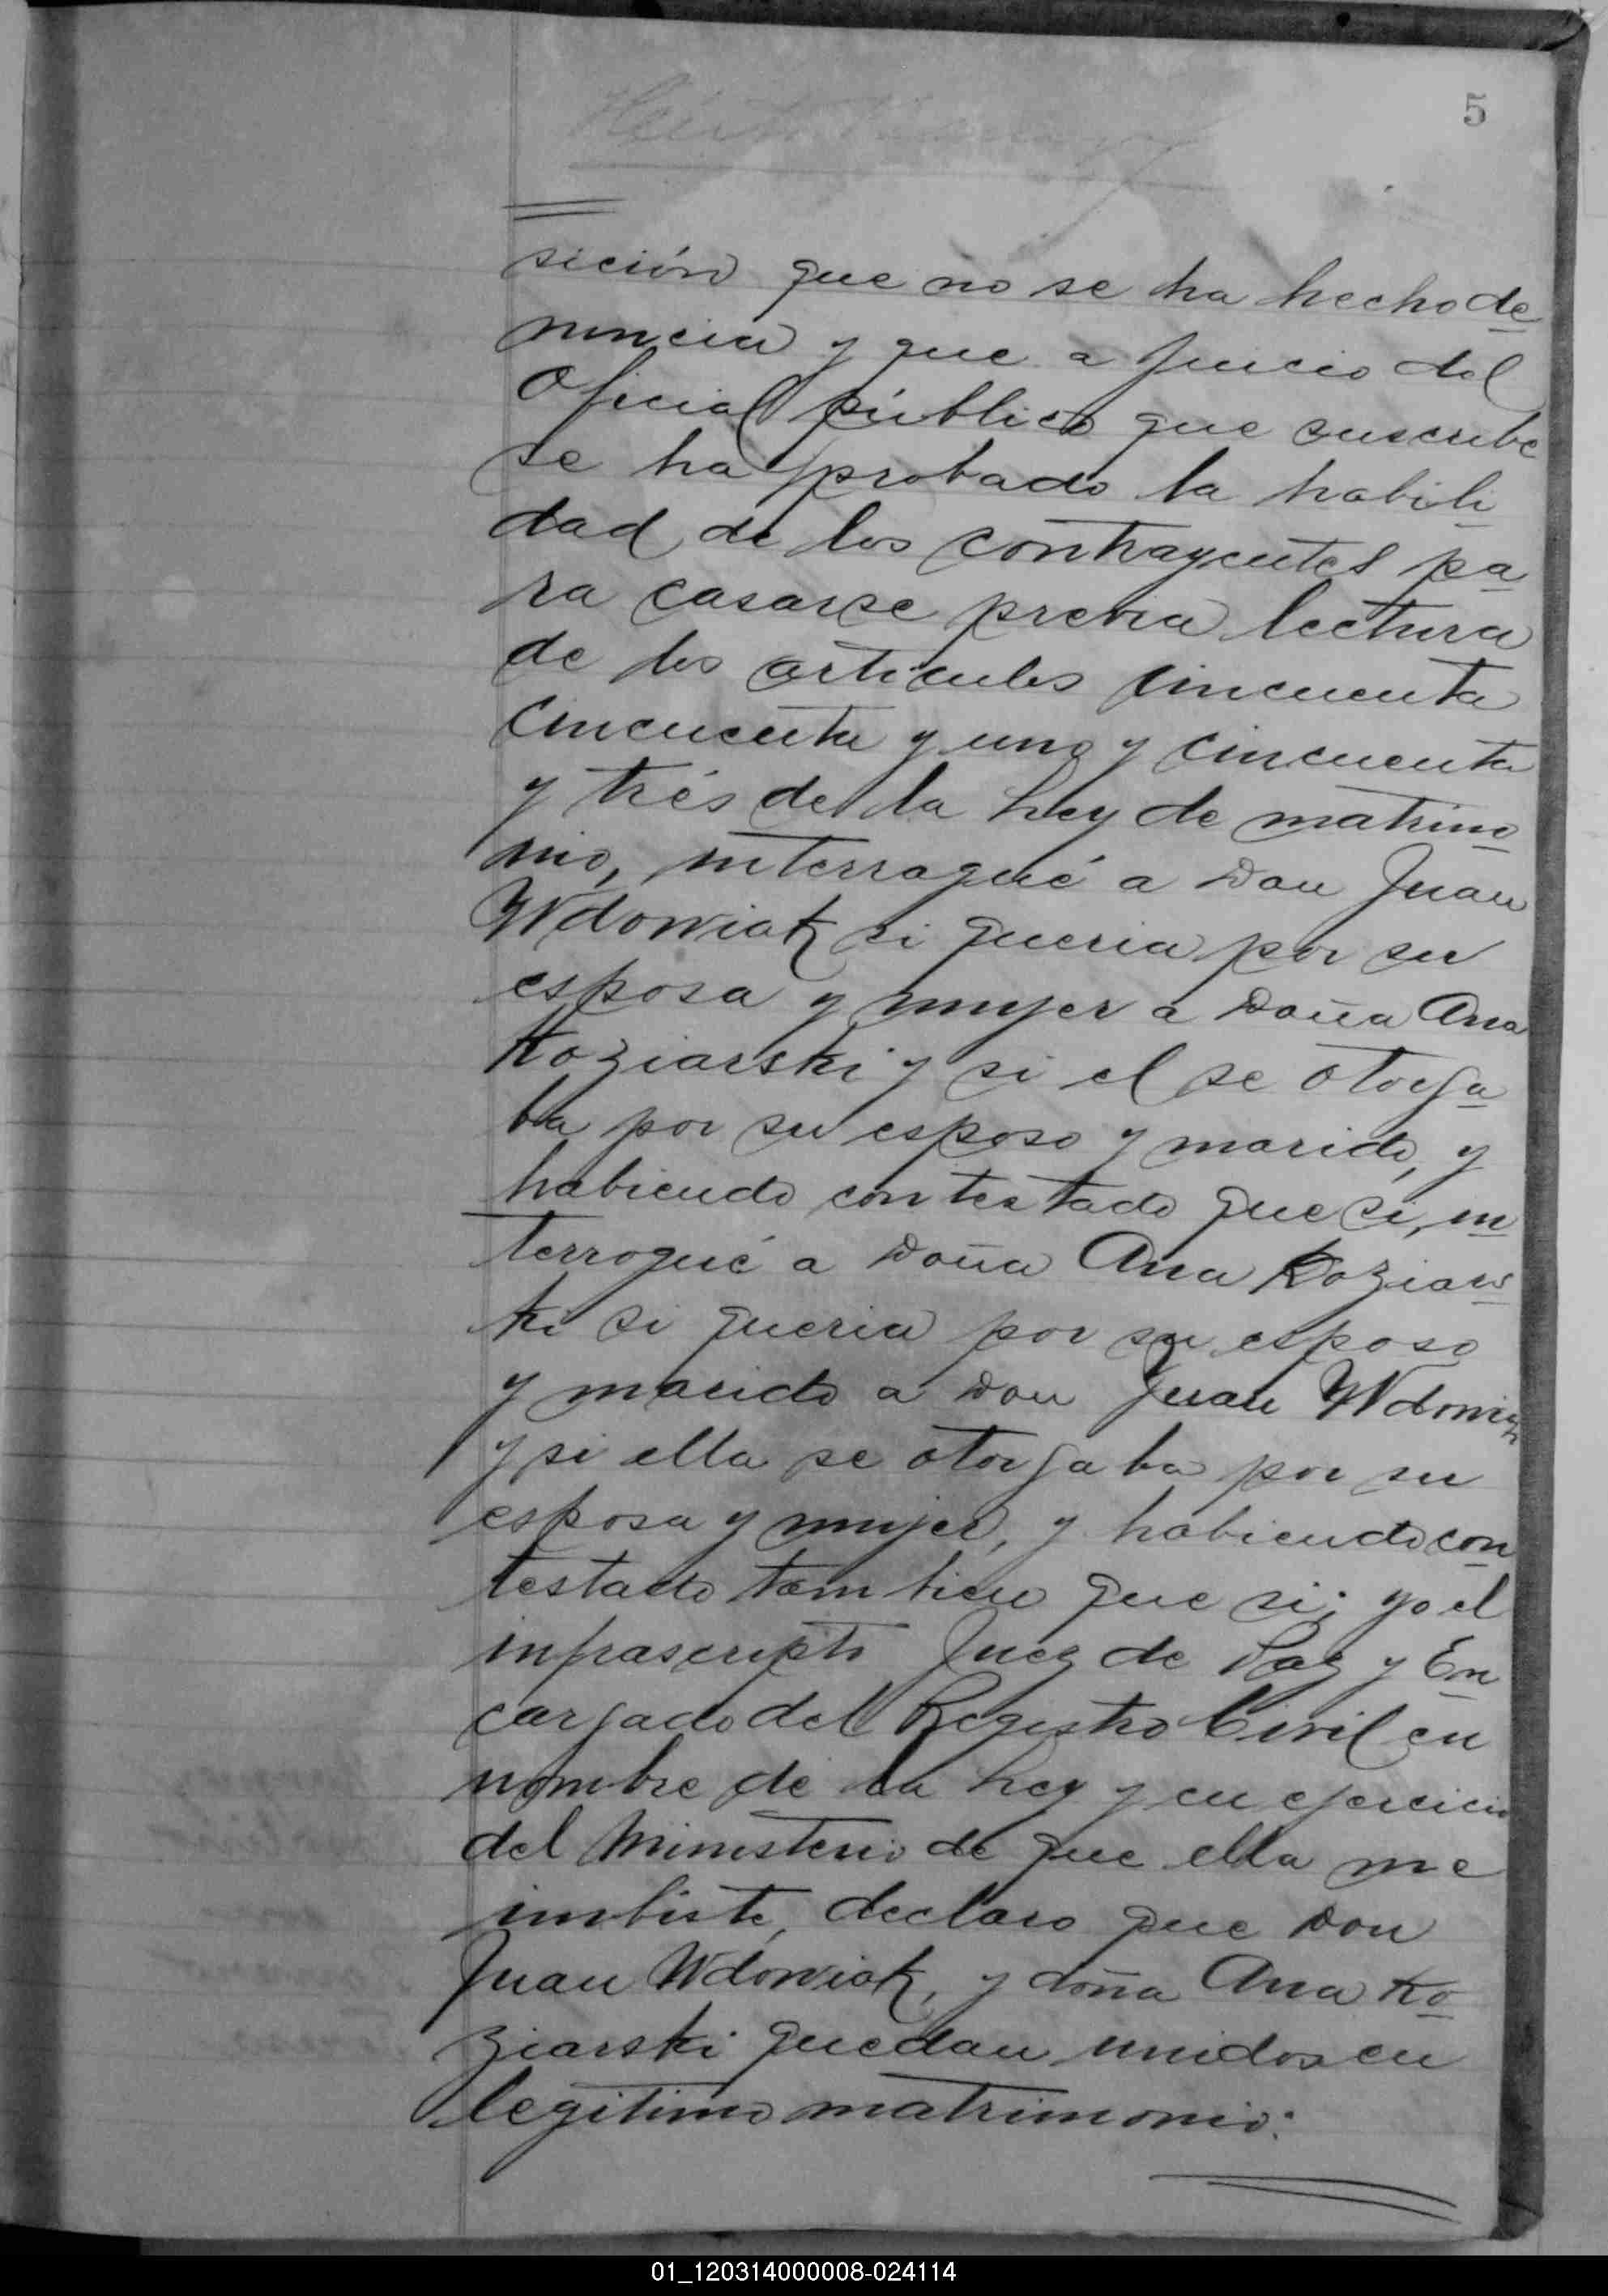 5
sición que no se ha hecho de
nuncia y que a juicio del
Oficial público que suscribe
se ha probado la habili
dad de los contrayentes pa
ra casarse previa lectura
de los articulos cincuenta
cincuenta y uno y cincuenta
y trés de la Ley de matrimo
nio, interrogué a Don Juan
Wdowiak si queria por su
esposa y mujer a Doña Ana
Koziarski y si el se otorga
ba por su esposo y marido, y
habiendo contestado que si, in
terrogué a Doña Ana Koziars
ki si queria por su esposo
y marido a Don Juan Wdowiak
y si ella se otorgaba por su
esposa y mujer, y habiendo con
testado tambien que si; yo el
infrascripto Juez de Paz y En
cargado del Registro Civil en
nombre de la Ley y en ejercicio
del Ministerio de que ella me
imbiste, declaro que Don
Juan Wdowiak, y doña Ana Ko
ziarski quedan unidos en
legitimo matrimonio.
01_120314000008-024114